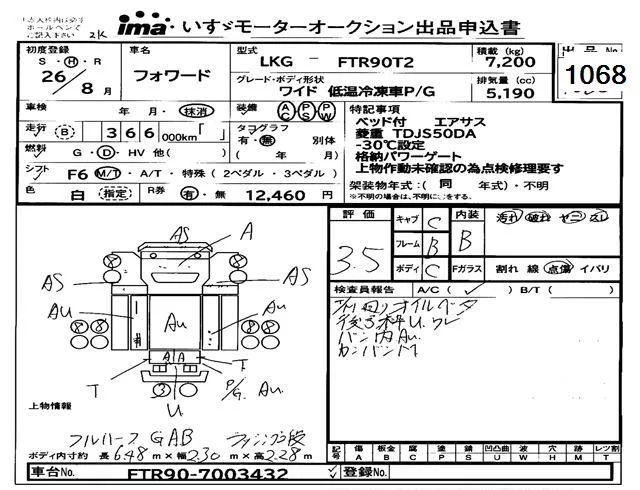 ima いすゞモーターオークション出品申込書
出品No.
1068
初度登録 S・H・R 26/8月
車名 フォワード
型式 LKG - FTR90T2
積載(kg) 7,200
グレード・ボディ形状 ワイド 低温冷凍車P/G
排気量(cc) 5,190
車検 年 月・抹消
装備 AC PS PW
走行 (B) 366 000km「 」
タコグラフ 有・無 別体 ( 年 月)
燃料 G・D・HV 他( )
シフト F6 M/T・A/T・特殊(2ペダル・3ペダル)
色 白 (指定) R券 有・無 12,460 円
特記事項
ベッド付 エアサス
菱重 TDJS50DA
-30℃設定
格納パワーゲート
上物作動未確認の為点検修理要す
架装物年式:( 同 年式)・不明
※不明の場合は、不明に○をする。
評価 3.5
キャブ C
フレーム B
ボディ C
内装 B
汚れ 破れ ヤニ スレ
Fガラス 割れ 線 点傷 イバリ
検査員報告 A/C( ✓ ) B/T( )
バン内 Au.
A
AS
AS
AS
Au
Au
Au
A A
T
T
U
P/G. Au.
上物情報
フルハーフ GAB
ボディ内寸約 長648m×幅2.30m×高2.28m
記号 傷 A 板金 B 腐 C 塗 P 錆 S 凹凸曲 U 波 W 穴 H 割 M レンズ割 T
車台No. FTR90-7003432
登録No.